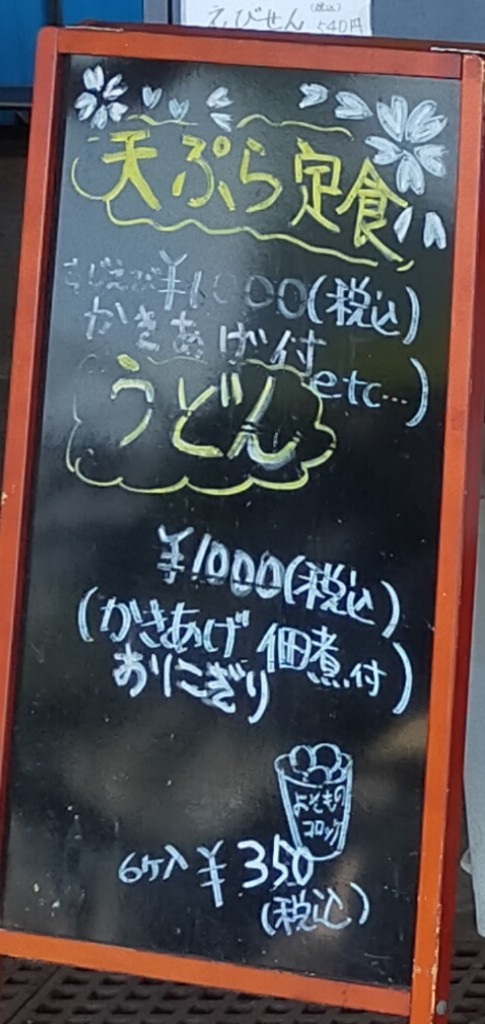 えびせん (税込) 540円
天ぷら定食
すじえび ¥1000(税込)
かきあげ付
etc…)
うどん
¥1000(税込)
(かきあげ 佃煮付)
おにぎり
よそもの
コロッケ
6ケ入 ¥350
(税込)